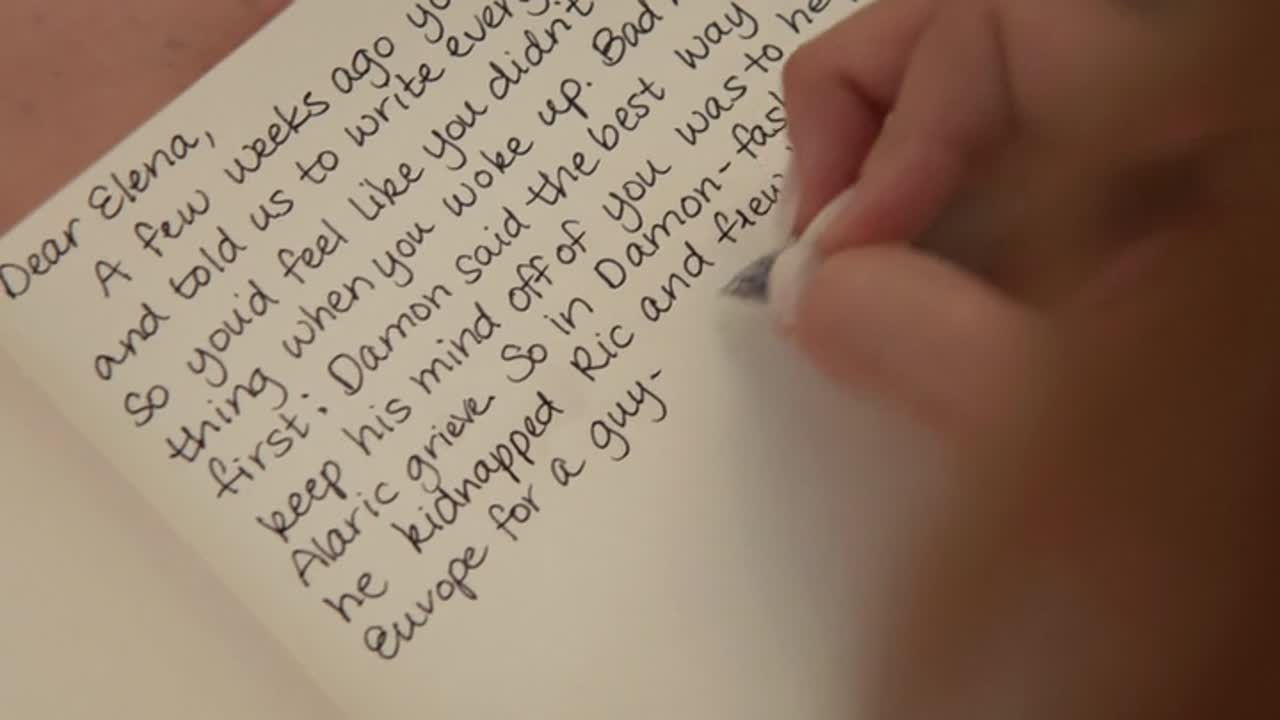 Dear Elena,
A few weeks ago
and told us to write
so you'd feel like you didn't
thing when you woke up. Bad
first: Damon said the best way
keep his mind off of you was to
Alaric grieve. So in Damon-
he kidnapped Ric and flew
Europe for a guy-